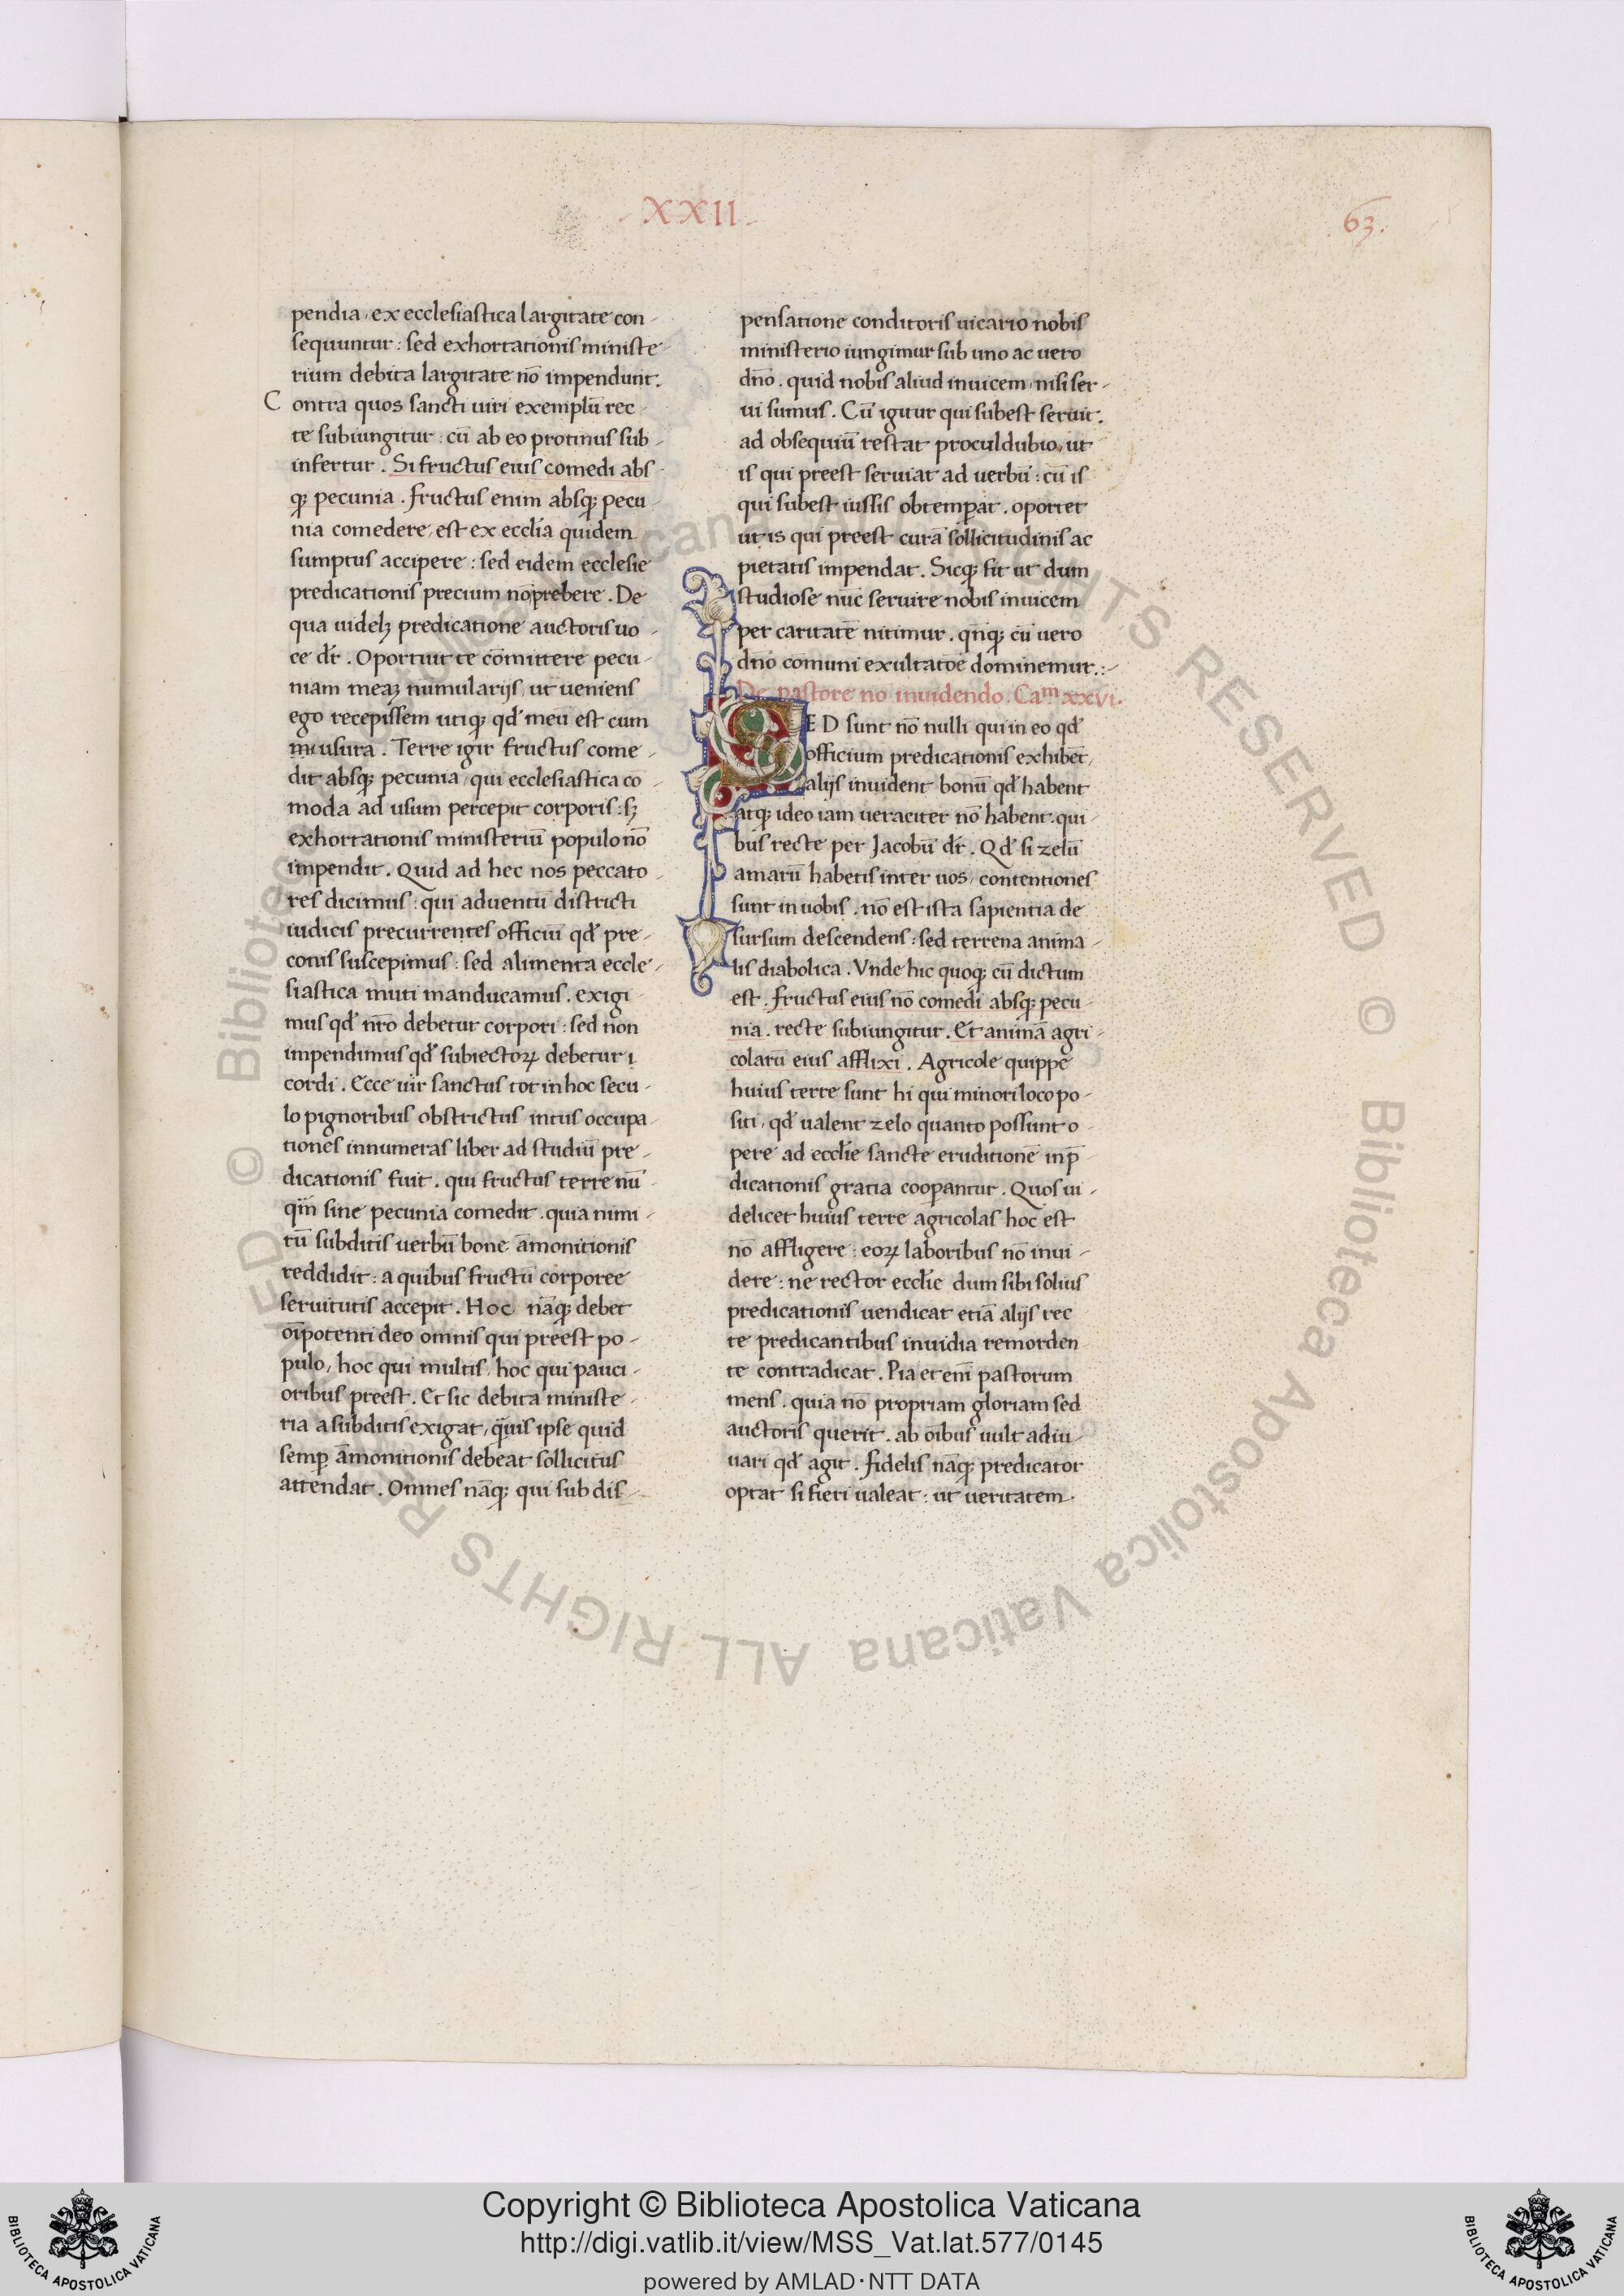 XXII
63.
pendia, ex ecclesiastica largitate con-
sequuntur : sed exhortationis ministe-
rium debita largitate nō impendunt.
Contra quos sancti uiri exemplū rec-
te subiungitur : cū ab eo protinus sub-
infertur . Si fructus eius comedi abs-
qꝫ pecunia . fructus enim absqꝫ pecu-
nia comedere, est ex ecclīa quidem
sumptus accipere : sed eidem ecclesie
predicationis precium nō prebere . De
qua uidelꝫ predicatione auctoris uo-
ce dr̄ . Oportuit te cōmittere pecu-
niam meaꝫ numularijs, ut ueniens
ego recepissem utiqꝫ qd̄ meū est cum
usura . Terre igir̄ fructus come-
dit absqꝫ pecunia, qui ecclesiastica cō-
moda ad usum percepit corporis : sꝫ
exhortationis ministeriū populo nō
impendit . Quid ad hec nos peccato-
res dicimus : qui aduentū districti
iudicis precurrentes officiū qd̄ pre-
conis suscepimus : sed alimenta eccle-
siastica muti manducamus . exigi-
mus qd̄ nr̄o debetur corpori : sed non
impendimus qd̄ subiectoꝝ debetur ı
cordi . Ecce uir sanctus tot in hoc secu-
lo pignoribus obstrictus intus occupa-
tiones innumeras liber ad studiū pre-
dicationis fuit . qui fructus terre nū-
qm̄ sine pecunia comedit . quia nimi-
rū subditis uerbū bone āmonitionis
reddidit : a quibus fructū corporee
seruitutis accepit . Hoc nāqꝫ debet
oīpotenti deo omnis qui preest po-
pulo, hoc qui multis, hoc qui pauci-
oribus preest . Et sic debita ministe-
ria a subditis exigat, q̄uis ipse quid
semꝑ āmonitionis debeat sollicitus
attendat . Omnes nāqꝫ qui sub dis-
pensatione conditoris uicario nobis
ministerio iungimur sub uno ac uero
dn̄o . quid nobis aliud inuicem, nisi ser-
ui sumus . Cū igitur qui subest seruit .
ad obsequiū restat proculdubio, ut
is qui preest seruiat ad uerbū : cū is
qui subest iussis obtemꝑat . oportet
ut is qui preest curā sollicitudinis ac
pietatis impendat . Sicqꝫ fit ut dum
studiose nūc seruire nobis inuicem
per caritatē nitimur . qn̄qꝫ cū uero
dn̄o comuni exultatōe dominemur .:-
De pastore no inuidendo . Caᵐ. xxvi.
SED sunt nō nulli qui in eo qd̄
officium predicationis exhibēt,
alijs inuident bonū qd̄ habent
atqꝫ ideo iam ueraciter nō habent . qui-
bus recte per Jacobū dr̄ . Qd̄ si zelū
amarū habetis inter uos, contentiones
sunt in uobis . nō est ista sapientia de
sursum descendens : sed terrena anima-
lis diabolica . Vnde hic quoqꝫ cū dictum
est . fructus eius nō comedi absqꝫ pecu-
nia . recte subiungitur . Et animā agri-
colarū eius afflixi . Agricole quippe
huius terre sunt hi qui minori loco po-
siti, qd̄ ualent zelo quanto possunt o-
pere ad eccl̄ie sancte eruditionē in p̄-
dicationis gratia cooꝑantur . Quos ui-
delicet huius terre agricolas hoc est
nō affligere : eoꝝ laboribus nō inui-
dere : ne rector eccl̄ie dum sibi solius
predicationis uendicat etiā alijs rec
te predicantibus inuidia remorden-
te contradicat . Pia et enī pastorum
mens . quia nō propriam gloriam sed
auctoris querit . ab oībus uult adiu-
uari qd̄ agit . fidelis nāqꝫ predicator
optat si fieri ualeat : ut ueritatem.
© Biblioteca Apostolica Vaticana ALL RIGHTS RESERVED © Biblioteca Apostolica Vaticana ALL RIGHTS RESERVED
Copyright © Biblioteca Apostolica Vaticana
http://digi.vatlib.it/view/MSS_Vat.lat.577/0145
powered by AMLAD·NTT DATA
BIBLIOTECA APOSTOLICA VATICANA
BIBLIOTECA APOSTOLICA VATICANA